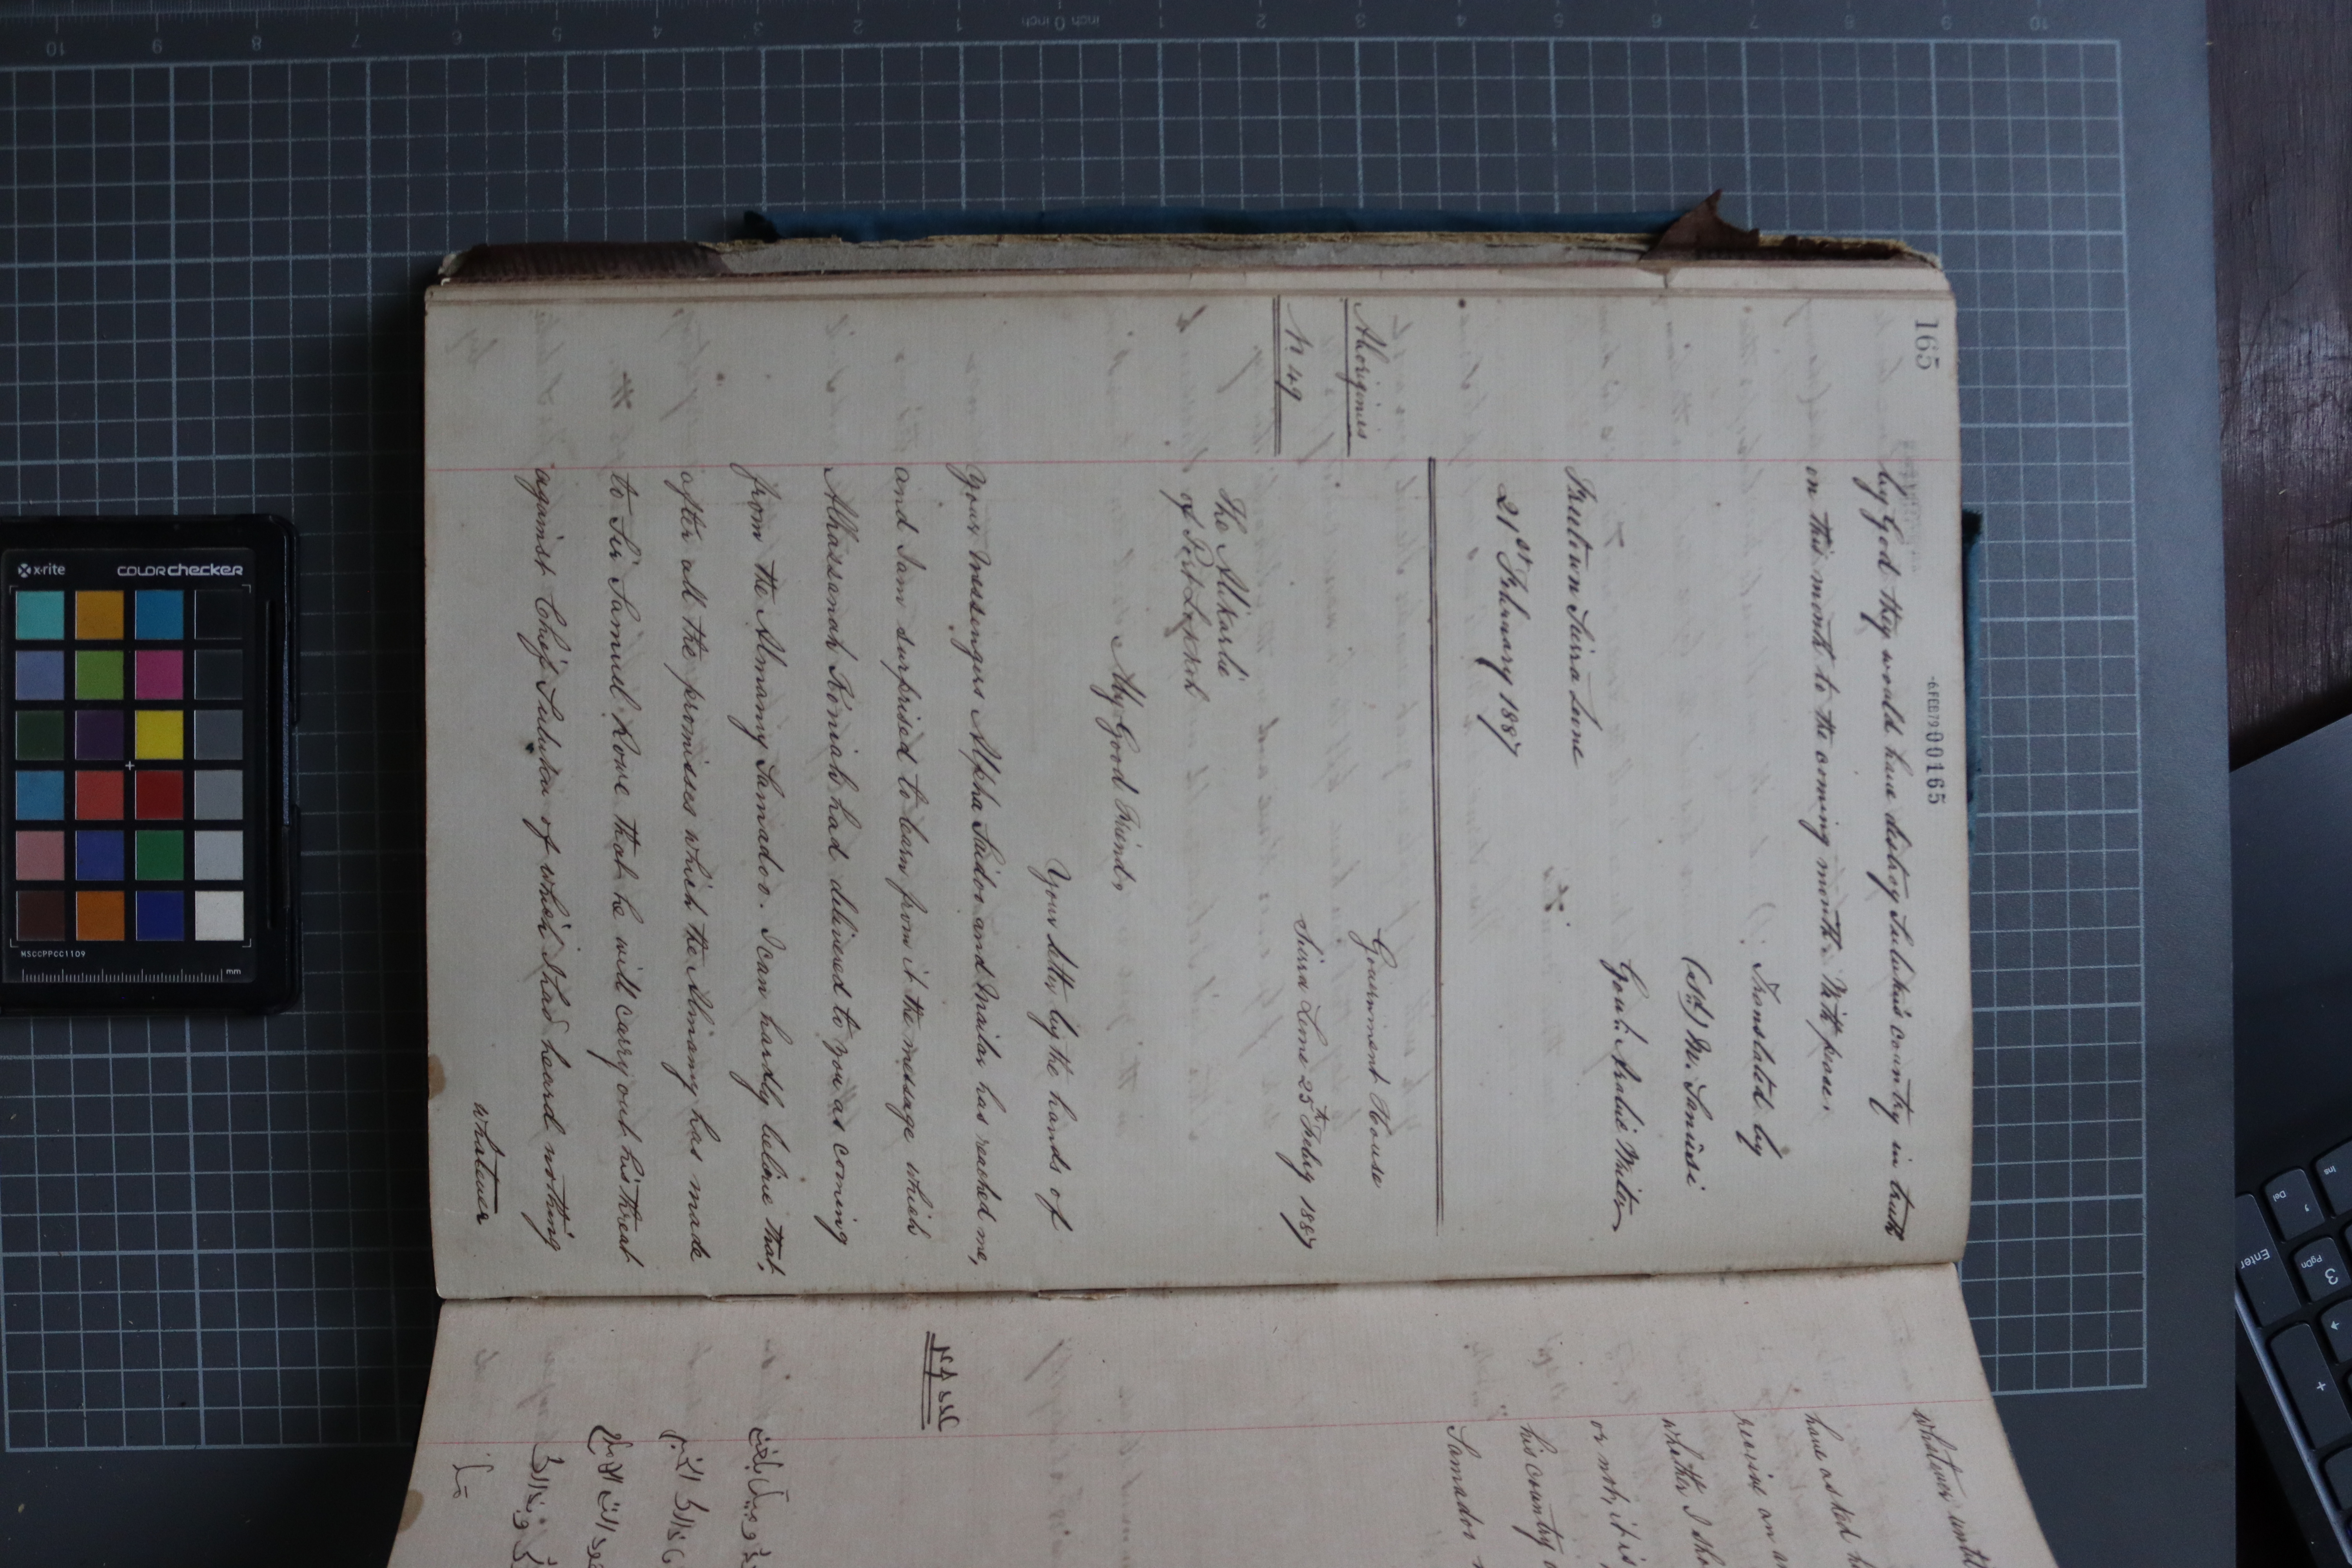 165
-6FEB79000165
by God they would have distroy Suluku's country in truth
in this month to the coming month. With peace.
Translated by
(Sd) M. Sanüsi
Govt: Arabic Writer
Freetown Sierra Leone
21st February 1887
Aborigines
N. 49
Government House
Sierra Leone 25th Feby 1887
The Alikarlie
of Port Lokkoh
My Good Friend,
Your letter by the hands of
your messengers Alpha Saidoo and Mailar has reached me,
and I am surprised to learn from it the message which
Alhassanah Koniah had delivered to you as coming
from the Almamy Samadoo. I can hardly believe that,
after all the promises which the Almamy has made
to Sir Samuel Rowe that he will carry out his threat
against Chief Suluku of which I had heard nothing
whatever
whatever until
have asked h
receive an a
whether I sho
or not, it is
his country
Samadoo
x-rite
COLORchecker
MSCCPPCC1109
mm
inch 0 inch
Enter
Del
Ins
PgDn
3
+